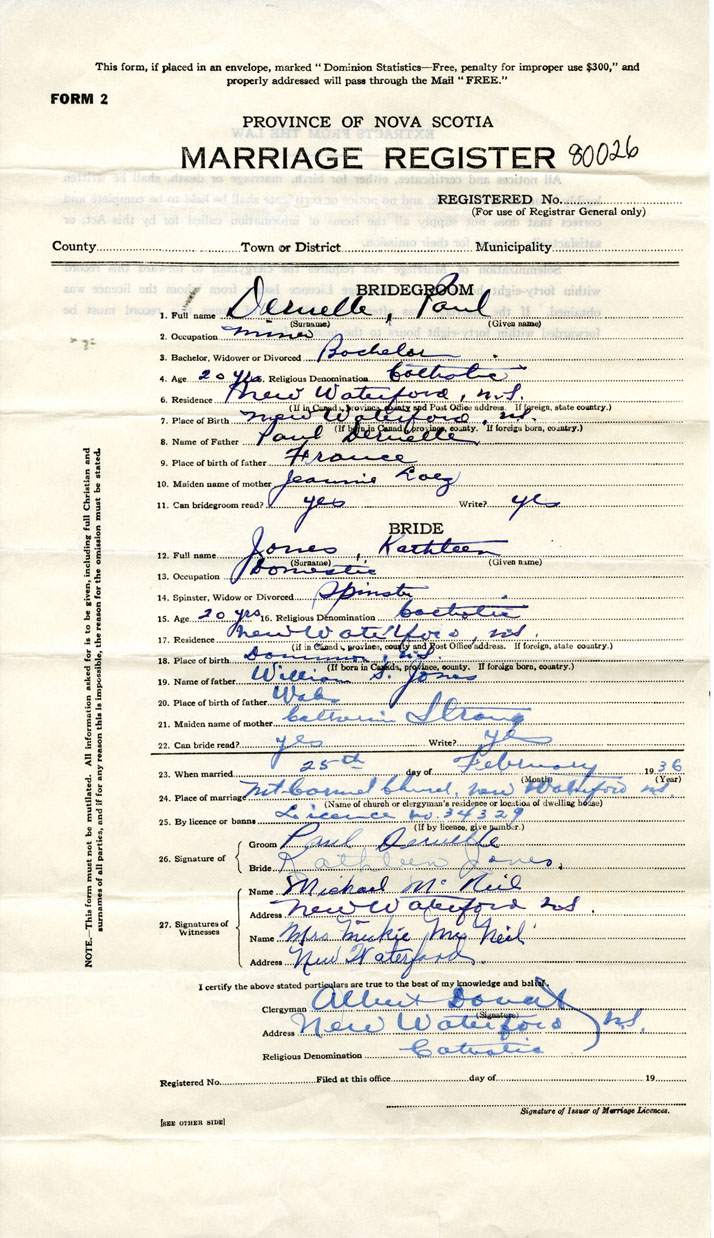 This form, if placed in an envelope, marked "Dominion Statistics—Free, penalty for improper use $300," and
properly addressed will pass through the Mail "FREE."
FORM 2
PROVINCE OF NOVA SCOTIA
MARRIAGE REGISTER 80026
REGISTERED No.
(For use of Registrar General only)
County Town or District Municipality
BRIDEGROOM
1. Full name Deruelle, Paul
(Surname) (Given name)
2. Occupation Miner
3. Bachelor, Widower or Divorced Bachelor
4. Age 20 yrs. Religious Denomination Catholic
6. Residence New Waterford, N.S.
(If in Canada, province, county and Post Office address. If foreign, state country.)
7. Place of Birth New Waterford, N.S.
(If born in Canada, province, county. If foreign born, country.)
8. Name of Father Paul Deruelle
9. Place of birth of father France
10. Maiden name of mother Jeannie
11. Can bridegroom read? yes Write? yes
BRIDE
12. Full name Jones, Kathleen
(Surname) (Given name)
13. Occupation Domestic
14. Spinster, Widow or Divorced Spinster
15. Age 20 yrs 16. Religious Denomination Catholic
17. Residence New Waterford, N.S.
(if in Canada, province, county and Post Office address. If foreign, state country.)
18. Place of birth Dominion, N.S.
(If born in Canada, province, county. If foreign born, country.)
19. Name of father William S. Jones
20. Place of birth of father Wales
21. Maiden name of mother Catherine Strong
22. Can bride read? yes Write? yes
23. When married 25th day of February 1936
(Month) (Year)
24. Place of marriage Mt Carmel Church, New Waterford N.S.
(Name of church or clergyman's residence or location of dwelling house)
25. By licence or banns Licence no. 34329
(If by licence, give number.)
26. Signature of
Groom Paul Deruelle
Bride Kathleen Jones.
27. Signatures of Witnesses
Name Michael McNeil
Address New Waterford N.S.
Name Mrs Mickie McNeil
Address New Waterford.
I certify the above stated particulars are true to the best of my knowledge and belief.
Clergyman Albert
(Signature)
Address New Waterford N.S.
Religious Denomination Catholic
Registered No. Filed at this office day of 19
Signature of Issuer of Marriage Licences.
[SEE OTHER SIDE]
NOTE.—This form must not be mutilated. All information asked for is to be given, including full Christian and
surnames of all parties, and if for any reason this is impossible, the reason for the omission must be stated.